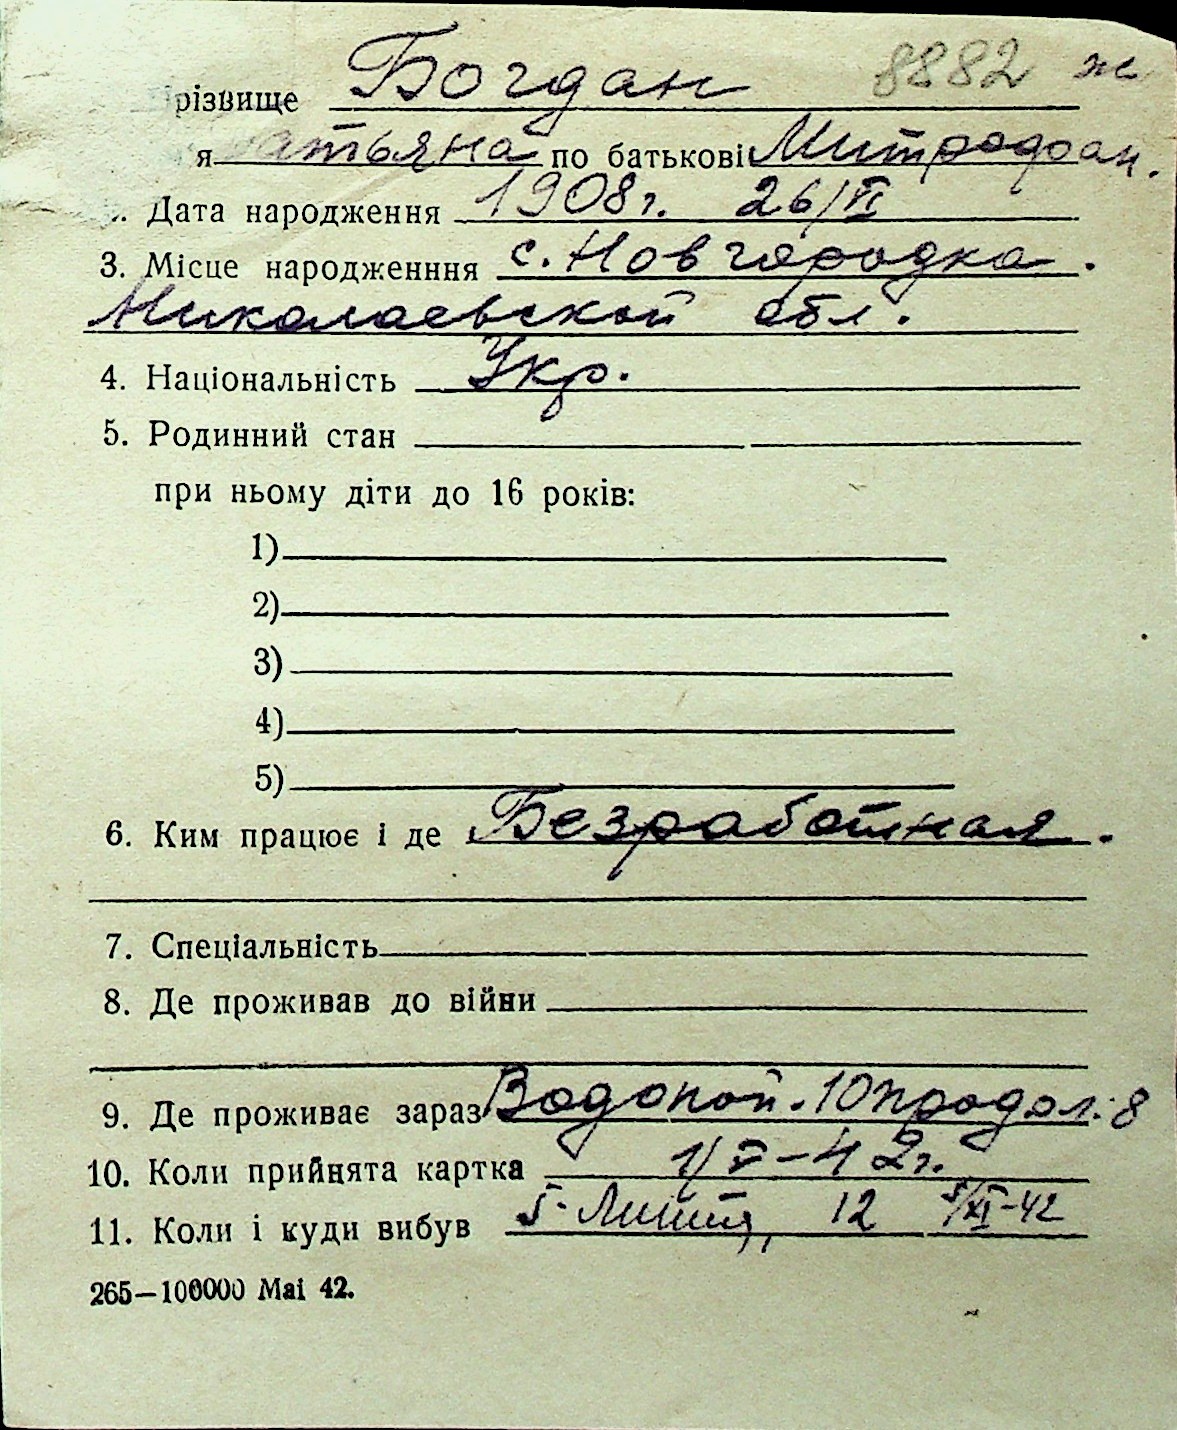 різвище Богдан 8882 ж
я атьяна по батькові Митрофан.
. Дата народження 1908г. 26/VI
3. Місце народженння с. Новгородка.
Николаевской обл.
4. Національність Укр.
5. Родинний стан
при ньому діти до 16 років:
1)
2)
3)
4)
5)
6. Ким працює і де Безработная.
7. Спеціальність
8. Де проживав до війни
9. Де проживає зараз Водопой. 10 продол. 8
10. Коли прийнята картка 1/V-42г.
11. Коли і куди вибув 5. 12 5/XI-42
265—100000 Mai 42.